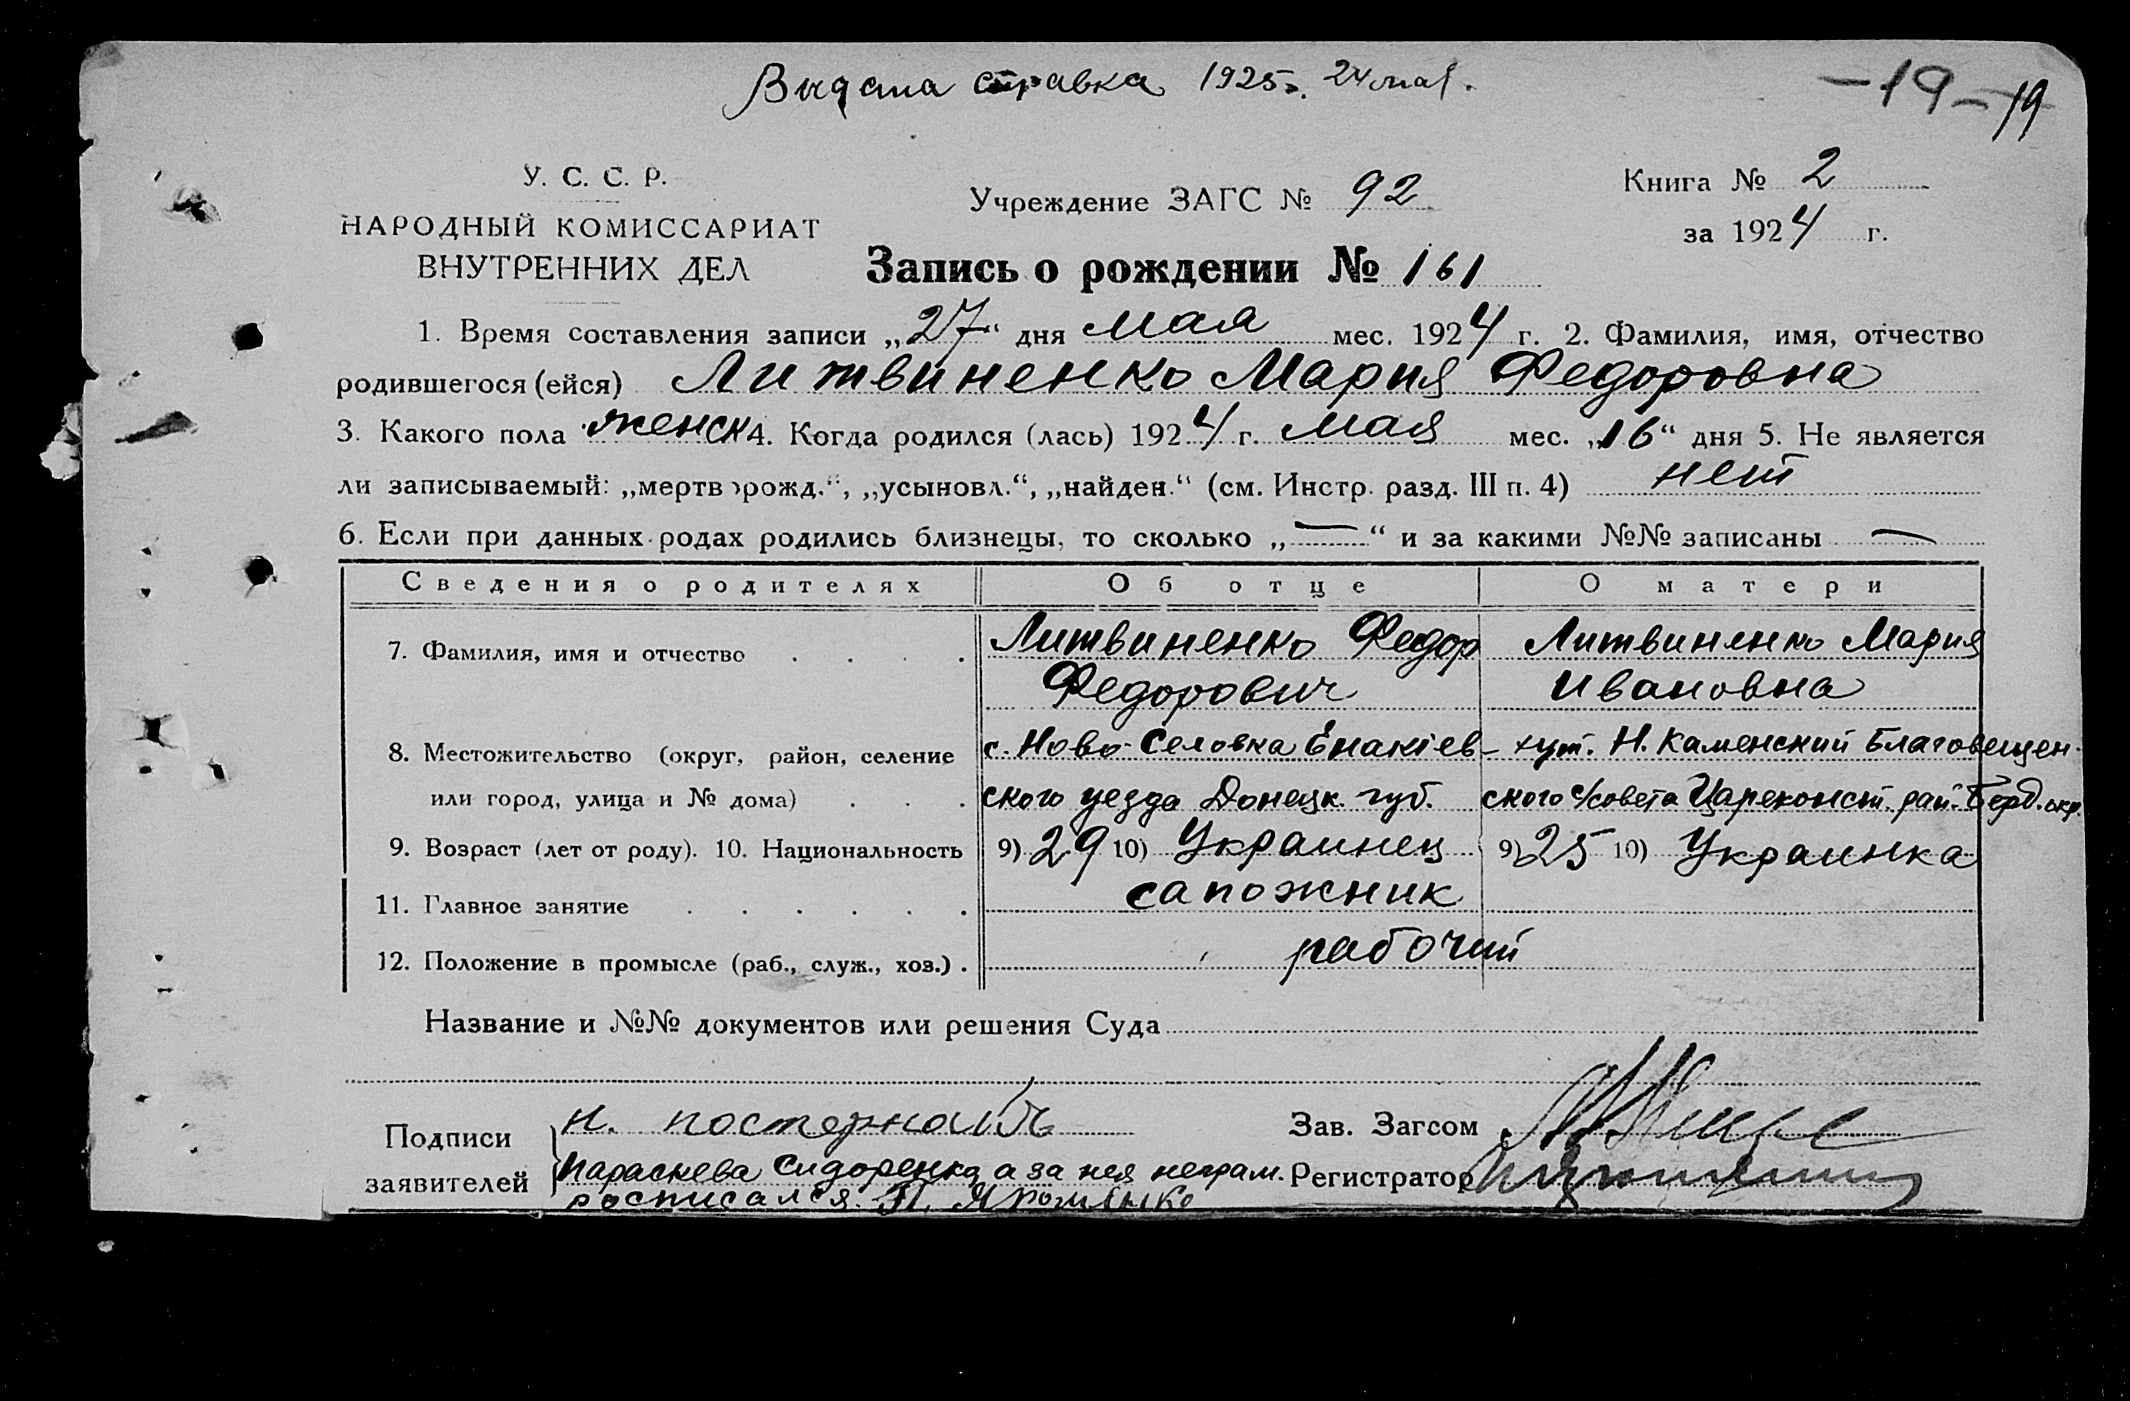 Выдана справка 1925г. 24 мая.
-19- 19
У. С. С. Р.
НАРОДНЫЙ КОМИССАРИАТ
ВНУТРЕННИХ ДЕЛ
Учреждение ЗАГС № 92
Книга № 2
за 1924 г.
Запись о рождении № 161
1. Время составления записи „27“ дня мая мес. 1924 г. 2. Фамилия, имя, отчество
родившегося (ейся) Литвиненко Мария Федоровна
3. Какого пола женск 4. Когда родился (лась) 1924 г. мая мес. „16“ дня 5. Не является
ли записываемый: „мертворожд.“, „усыновл.“, „найден.“ (см. Инстр. разд. III п. 4) нет
6. Если при данных родах родились близнецы, то сколько „—“ и за какими №№ записаны —
Сведения о родителях Об отце О матери
7. Фамилия, имя и отчество . . . . Литвиненко Федор Литвиненко Мария
Федорович Ивановна
8. Местожительство (округ, район, селение с. Ново-Селовка Енакіев- хут. Н. Каменский Благовещен-
или город, улица и № дома) . . . ского уезда Донецк. губ. ского с/совета Цареконст. рай. Берд. окр.
9. Возраст (лет от роду). 10. Национальность 9) 29 10) Украинец 9) 25 10) Украинка
11. Главное занятие . . . . . . сапожник
12. Положение в промысле (раб., служ., хоз.) . рабочий
Название и №№ документов или решения Суда
Подписи
заявителей
Н.
Параскева Сидоренко а за нея неграм.
росписался. П.
Зав. Загсом
Регистратор